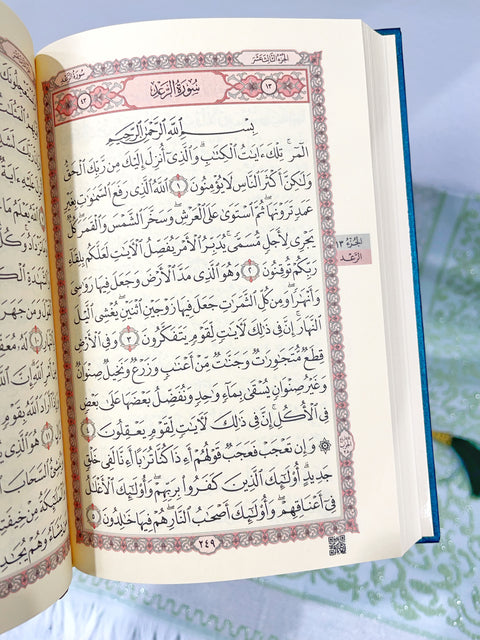 الجزء الثالث عشر
سورة الرعد
١٣ سورة الرعد ٤٣
بِسْمِ اللَّهِ الرَّحْمَٰنِ الرَّحِيمِ
الٓمٓر ۚ تِلْكَ ءَايَٰتُ الْكِتَٰبِ ۗ وَالَّذِىٓ أُنزِلَ إِلَيْكَ مِن رَّبِّكَ الْحَقُّ
وَلَٰكِنَّ أَكْثَرَ النَّاسِ لَا يُؤْمِنُونَ ١ اللَّهُ الَّذِى رَفَعَ السَّمَٰوَٰتِ بِغَيْرِ
عَمَدٍ تَرَوْنَهَا ۖ ثُمَّ اسْتَوَىٰ عَلَى الْعَرْشِ ۖ وَسَخَّرَ الشَّمْسَ وَالْقَمَرَ ۖ كُلٌّ
يَجْرِى لِأَجَلٍ مُّسَمًّى ۚ يُدَبِّرُ الْأَمْرَ يُفَصِّلُ الْءَايَٰتِ لَعَلَّكُم بِلِقَآءِ
رَبِّكُمْ تُوقِنُونَ ٢ وَهُوَ الَّذِى مَدَّ الْأَرْضَ وَجَعَلَ فِيهَا رَوَٰسِىَ
وَأَنْهَٰرًا ۖ وَمِن كُلِّ الثَّمَرَٰتِ جَعَلَ فِيهَا زَوْجَيْنِ اثْنَيْنِ ۖ يُغْشِى الَّيْلَ
النَّهَارَ ۚ إِنَّ فِى ذَٰلِكَ لَءَايَٰتٍ لِّقَوْمٍ يَتَفَكَّرُونَ ٣ وَفِى الْأَرْضِ
قِطَعٌ مُّتَجَٰوِرَٰتٌ وَجَنَّٰتٌ مِّنْ أَعْنَٰبٍ وَزَرْعٌ وَنَخِيلٌ صِنْوَانٌ
وَغَيْرُ صِنْوَانٍ يُسْقَىٰ بِمَآءٍ وَٰحِدٍ وَنُفَضِّلُ بَعْضَهَا عَلَىٰ بَعْضٍ
فِى الْأُكُلِ ۚ إِنَّ فِى ذَٰلِكَ لَءَايَٰتٍ لِّقَوْمٍ يَعْقِلُونَ ٤
۞ وَإِن تَعْجَبْ فَعَجَبٌ قَوْلُهُمْ أَءِذَا كُنَّا تُرَٰبًا أَءِنَّا لَفِى خَلْقٍ
جَدِيدٍ ۗ أُو۟لَٰٓئِكَ الَّذِينَ كَفَرُوا۟ بِرَبِّهِمْ ۖ وَأُو۟لَٰٓئِكَ الْأَغْلَٰلُ
فِىٓ أَعْنَاقِهِمْ ۖ وَأُو۟لَٰٓئِكَ أَصْحَٰبُ النَّارِ ۖ هُمْ فِيهَا خَٰلِدُونَ ٥
٢٤٩
الجزء ١٣
الرعد
سورة الرعد